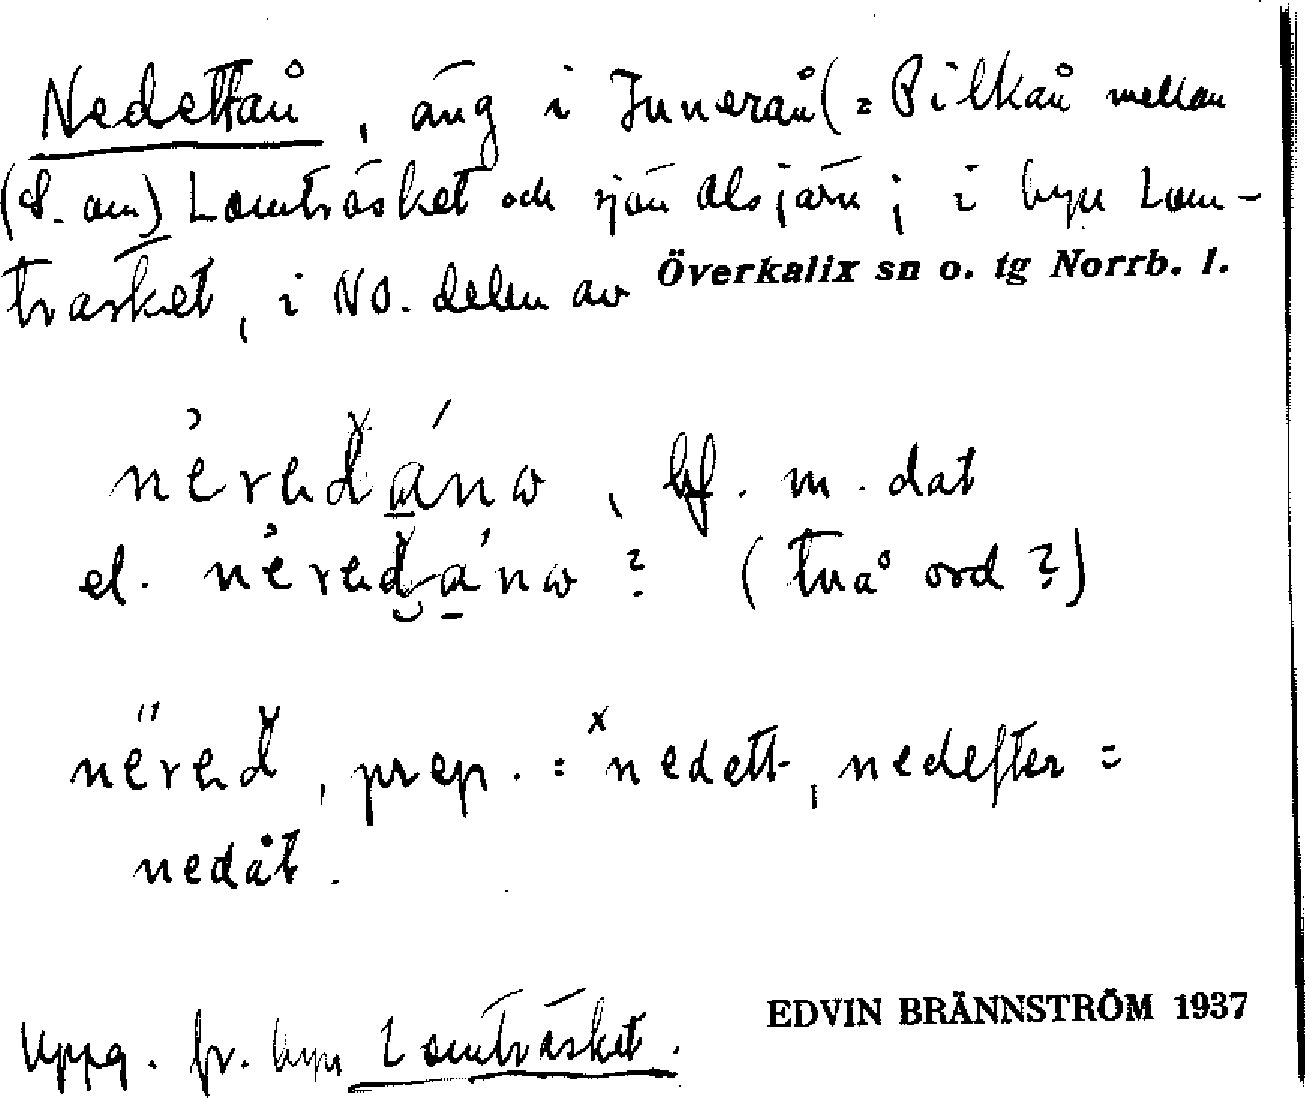 Nedettån, äng i Junerån (= Pilkån mellan
(s. om) Lomträsket och sjön Alsjärn; i byn Lom-
träsket, i NO. delen av Överkalix sn o. tg Norrb. l.
bf. m. dat
el. ? (två ord ?)
prep. = ˣnedett, nedefter =
nedåt.
Uppg. fr. byn Lomträsket.
EDVIN BRÄNNSTRÖM 1937